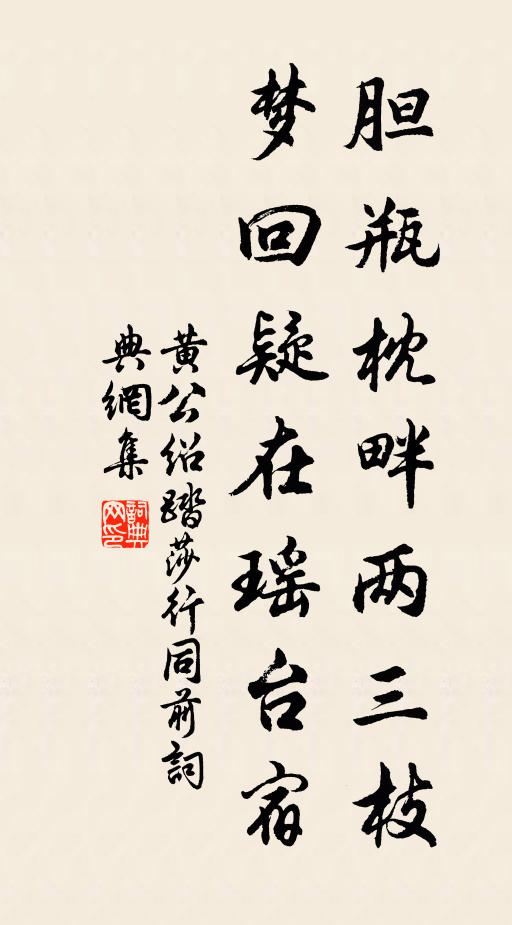 胆瓶枕畔两三枝
梦回疑在瑶台宿
黄公绍踏莎行同前詞
典網集
詞典
网印